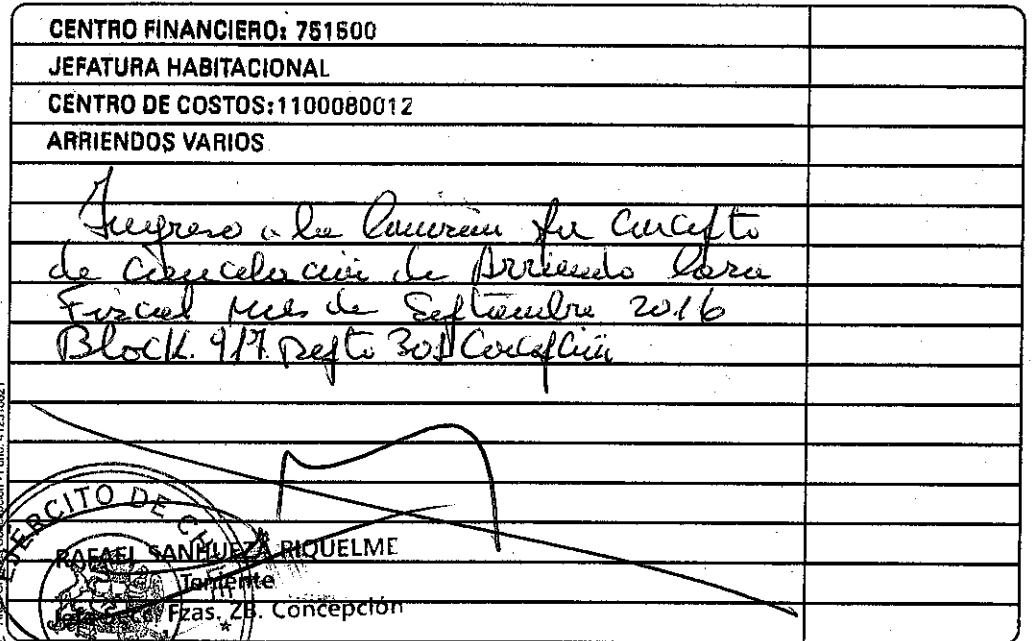 CENTRO FINANCIERO: 751500
JEFATURA HABITACIONAL
CENTRO DE COSTOS:1100080012
ARRIENDOS VARIOS
Ingreso a la Comisión por Concepto
de Cancelación de Arriendo Casa
Fiscal Mes de Septiembre 2016
Block. 9/7. Depto 301 Concepción
EJERCITO DE CHILE
RAFAEL SANHUEZA RIQUELME
Teniente
Fzas. ZB. Concepción